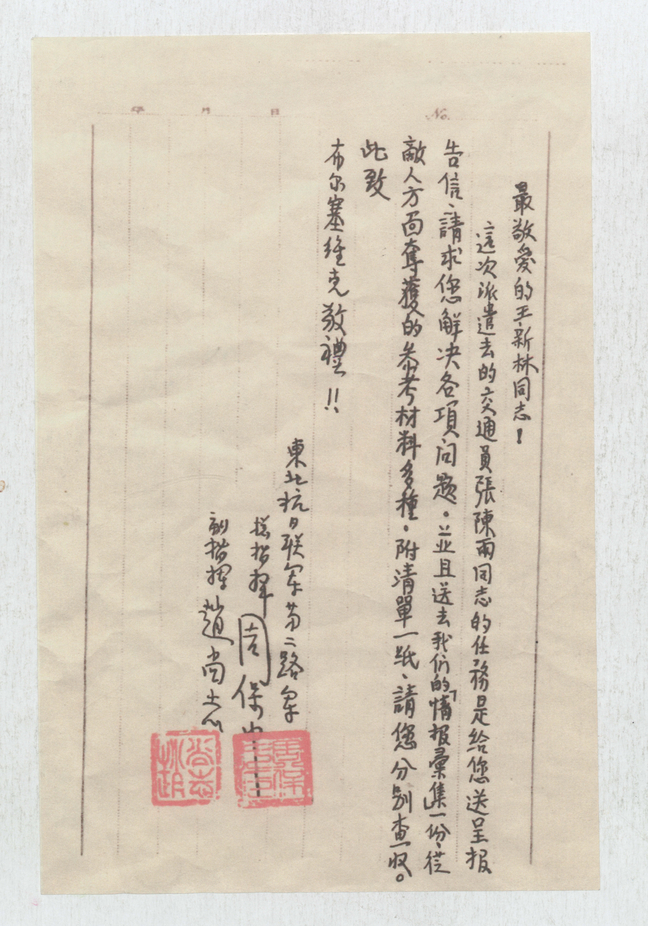 年 月 日 No.
最敬愛的王新林同志！
這次派遣去的交通員張陳兩同志的任務是給您送呈報
告信、請求您解决各項问题。並且送去我们的「情报彙集」一份、從
敵人方面奪獲的参考材料多種。附清單一紙、請您分别查收。
此致
布尔塞維克敬禮!!
東北抗日联军第二路军
总指揮 周保中
副指揮 趙尚志